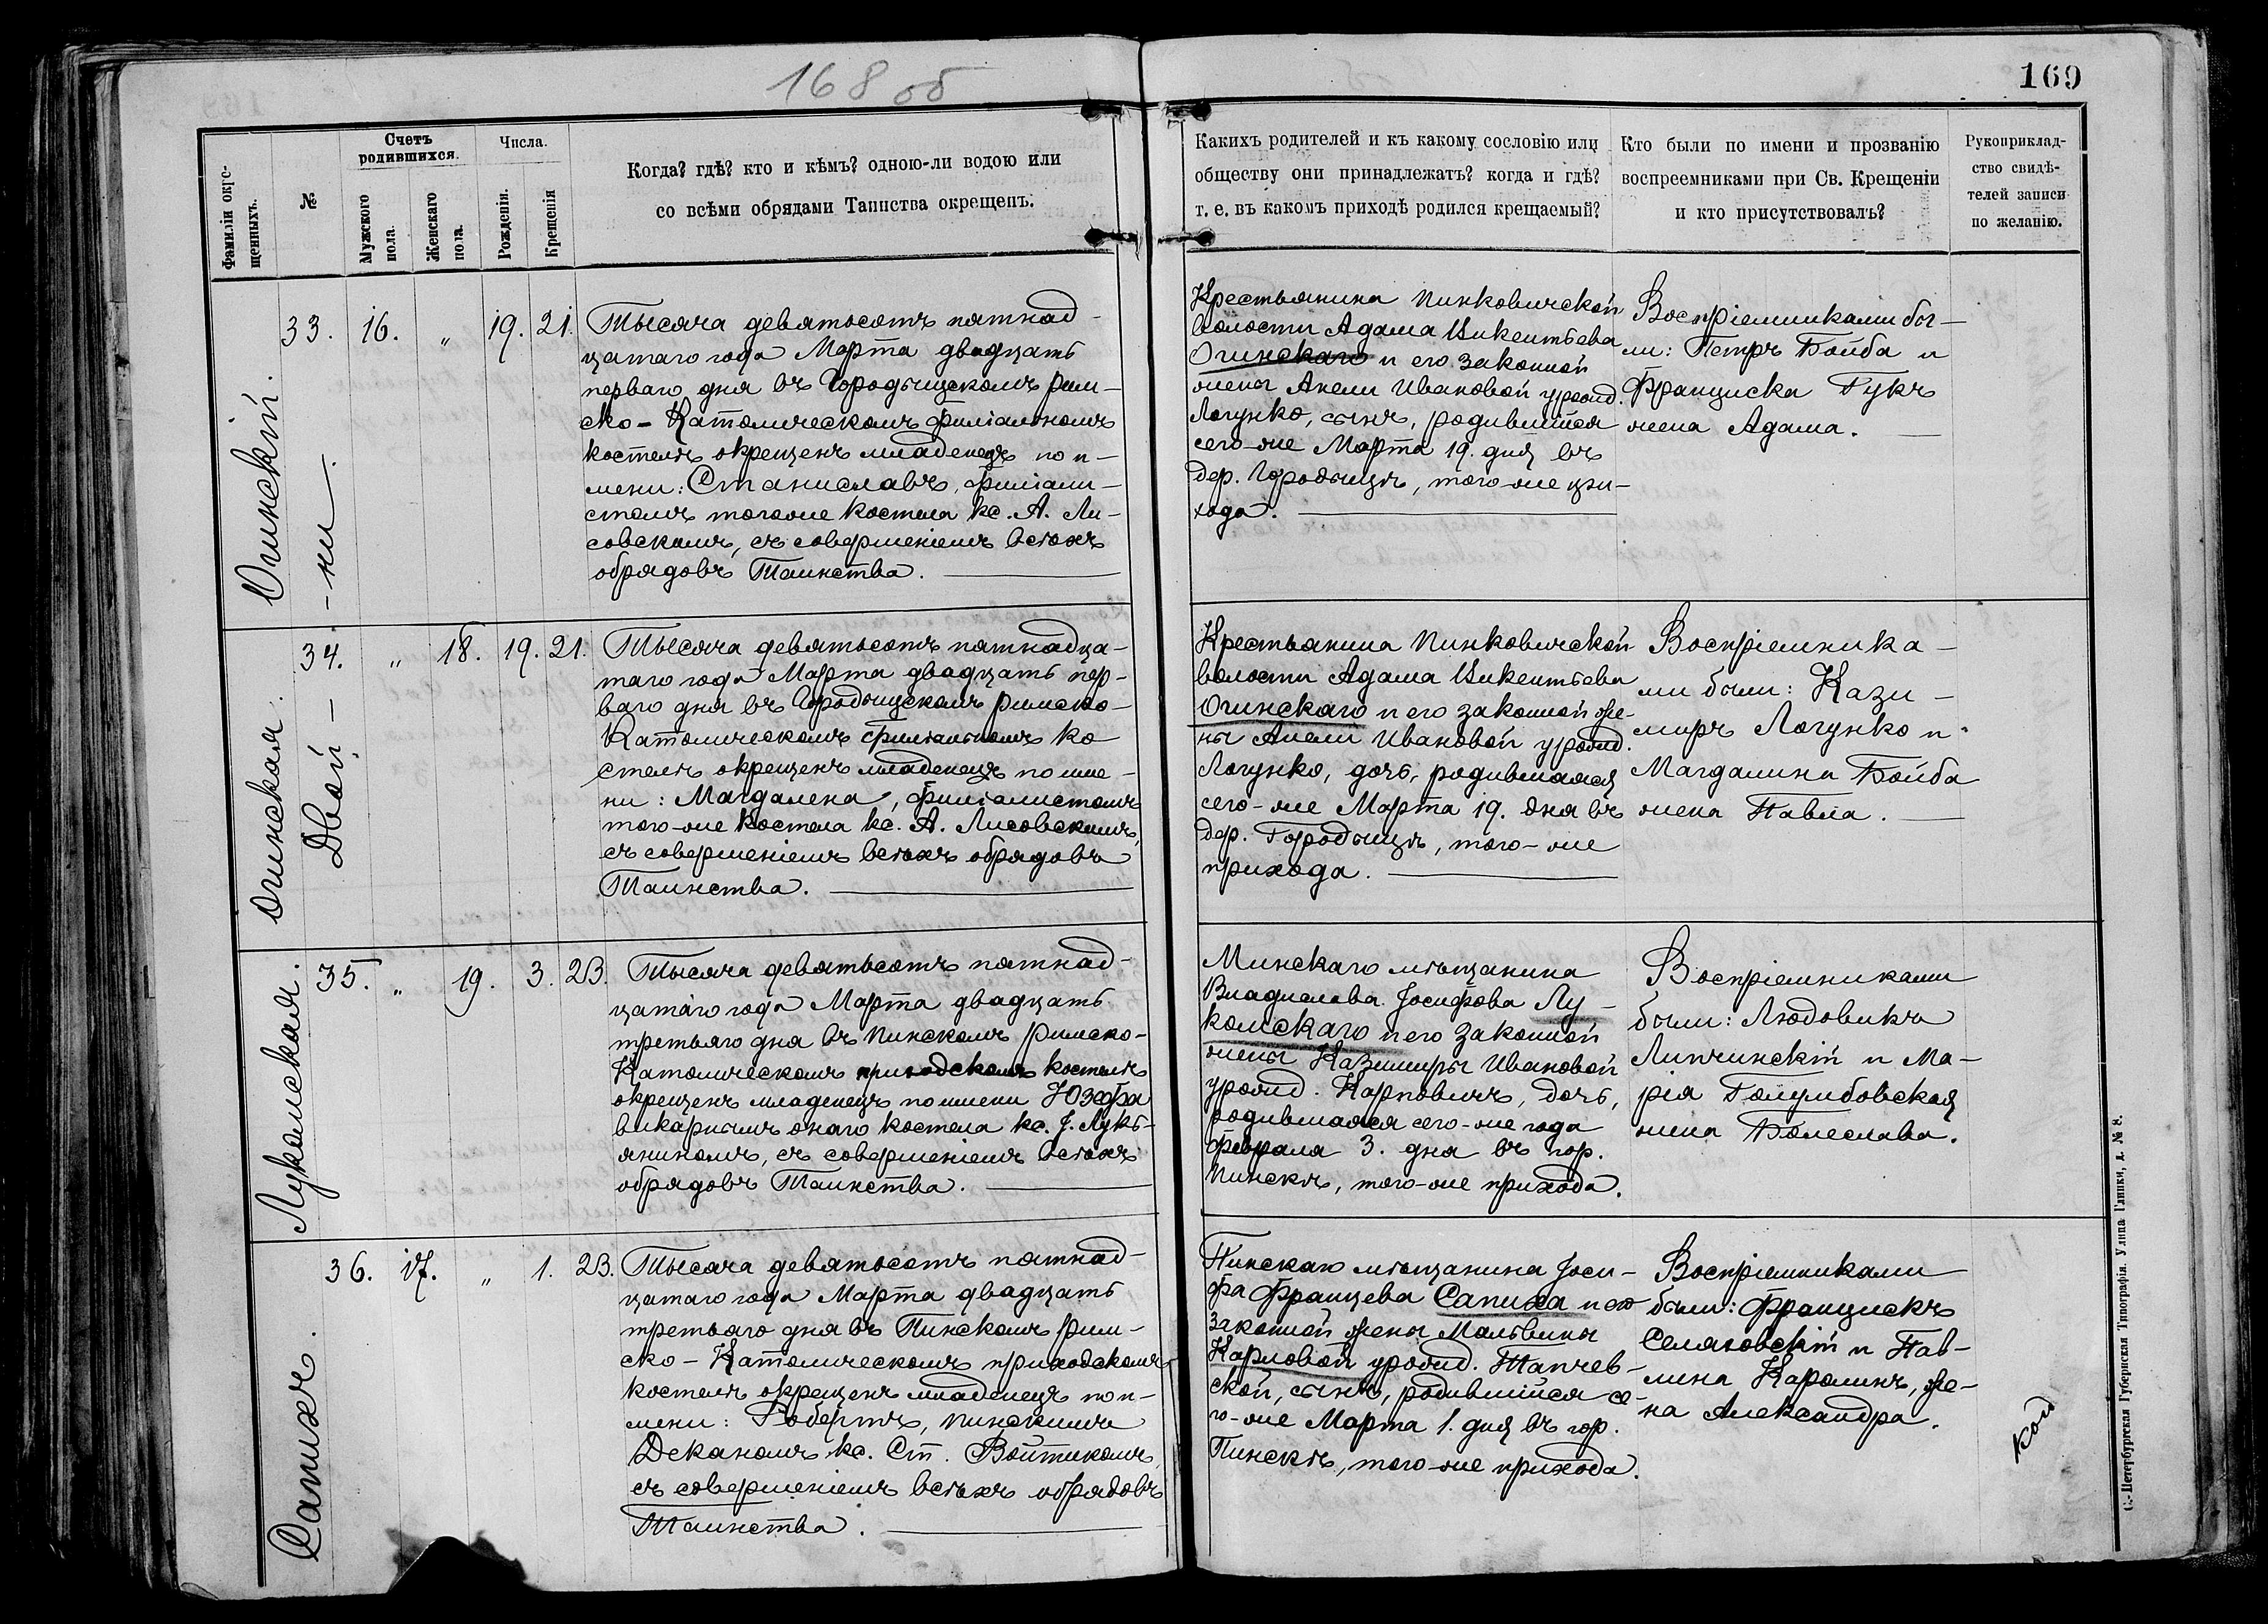 168 об
169
Фамиліи окре-
щенныхъ.
№
Счетъ
родившихся.
Мужского
пола.
Женскаго
пола.
Числа.
Рожденія.
Крещенія
Когда? гдѣ? кто и кѣмъ? одною-ли водою или
со всѣми обрядами Таинства окрещенъ.
Каких​ъ родителей и къ какому сословію или
обществу они принадлежатъ? когда и гдѣ?
т. е. въ какомъ приходѣ родился крещаемый?
Кто были по имени и прозванію
воспреемниками при Св. Крещеніи
и кто присутствовалъ?
Рукоприклад-
ство свидѣ-
телей записи
по желанію.
Огинскій.
-ни-
33. 16. „ 19. 21.
Тысяча девятьсотъ пятнад-
цатаго года Марта двадцать
перваго дня въ Городыщскомъ рим-
ско-Католическомъ филіальномъ
костелѣ окрещенъ младенецъ по и-
мени: Станиславъ, филіали-
стомъ тогоже костела кс. А. Ли-
совскимъ, съ совершеніемъ всѣхъ
обрядовъ Таинства.
Крестьянина Пинковичской
волости Адама Викентьева
Огинскаго и его законной
жены Анели Ивановой урожд.
Логунко, сынъ, родившійся
сего-же Марта 19. дня въ
дер. Городыщѣ, того-же при-
хода.
Воспріемниками бы-
ли: Петръ Бойба и
Франциска Гукъ
жена Адама.
Огинская.
Двой-
34. „ 18. 19. 21.
Тысяча девятьсотъ пятнадца-
таго года Марта двадцать пер-
ваго дня въ Городыщскомъ римско-
Католическомъ филіальномъ ко
стелѣ окрещенъ младенецъ по име-
ни: Магдалена, филіалистомъ
того-же костела кс. А. Лисовскимъ,
съ совершеніемъ всѣхъ обрядовъ
Таинства.
Крестьянина Пинковичской
волости Адама Викентьева
Огинскаго и его законной же-
ны Анели Ивановой урожд.
Логунко, дочь, родившаяся
сего-же Марта 19. дня въ
дер. Городыщѣ, того-же
прихода.
Воспріемника-
ми были: Кази-
миръ Логунко и
Магдалина Бойба
жена Павла.
Лукомская.
35. „ 19. 3. 23.
Тысяча девятьсотъ пятнад-
цатаго года Марта двадцать
третьяго дня въ Пинскомъ римско-
Католическомъ приходскомъ костелѣ
окрещенъ младенецъ по имени Юзефа
викарнымъ онаго костела кс. І. Лукь-
яниномъ, съ совершеніемъ всѣхъ
обрядовъ Таинства.
Минскаго мѣщанина
Владислава Іосифова Лу-
комскаго и его законной
жены Казимиры Ивановой
урожд. Карповичъ, дочь,
родившаяся сего-же года
февраля 3. дня въ гор.
Пинскѣ, того-же прихода.
Воспріемниками
были: Людовикъ
Липчинскій и Ма-
рія Голумбовская
жена Болеслава.
Сапиха.
36. 17. „ 1. 23.
Тысяча девятьсотъ пятнад-
цатаго года Марта двадцать
третьяго дня въ Пинскомъ рим-
ско-Католическомъ приходскомъ
костелѣ окрещенъ младенецъ по и-
мени: Робертъ, Пинскимъ
Деканомъ кс. Ст. Войтикомъ,
съ совершеніемъ всѣхъ обрядовъ
Таинства.
Пинскаго мѣщанина Іоси-
фа Францева Сапиха и его
законной жены Мальвины
Карловой урожд. Тапчев-
ской, сынъ, родившійся се-
го-же Марта 1. дня въ гор.
Пинскѣ, того-же прихода.
Воспріемниками
были: Францискъ
Селяховскій и Пав-
лина Каролинъ, же-
на Александра.
С.-Петербургская Губернская Типографія. Улица Глинки, д. № 8.